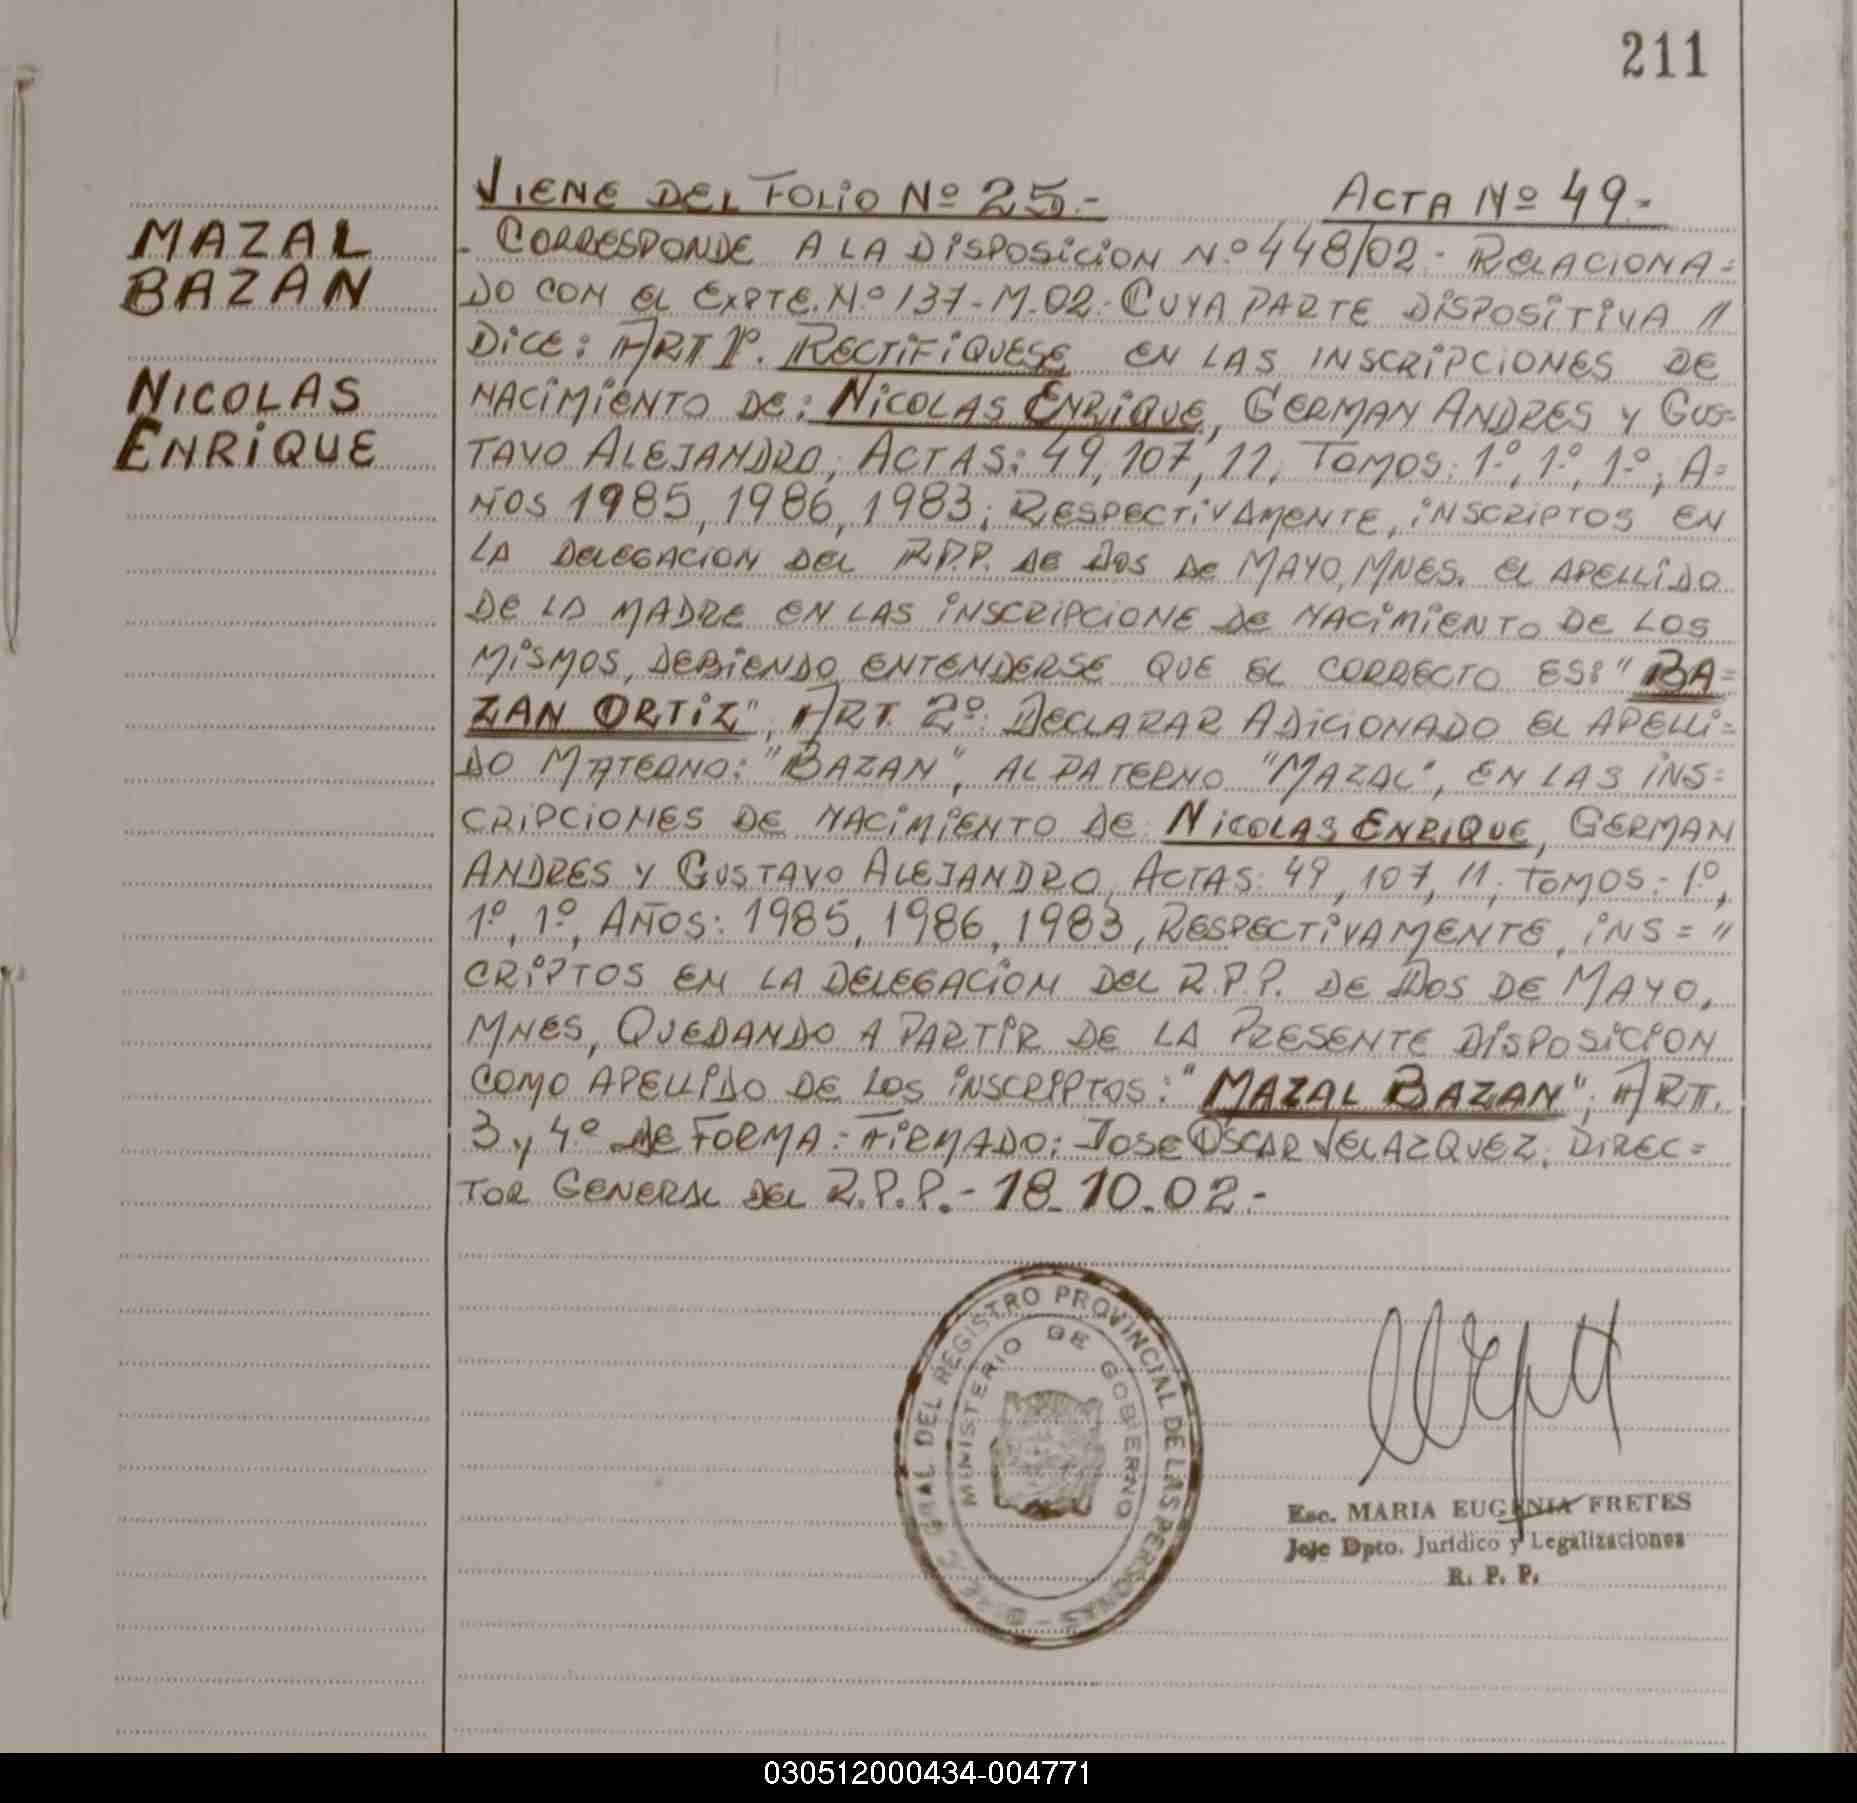 211
VIENE DEL FOLIO Nº 25.-
ACTA Nº 49.-
MAZAL
BAZAN
NICOLAS
ENRIQUE
- CORRESPONDE A LA DISPOSICION N.º 448/02.- RELACIONA=
DO CON EL EXPTE. N.º 137-M-02.- CUYA PARTE DISPOSITIVA //
DICE: ART 1º. RECTIFIQUESE EN LAS INSCRIPCIONES DE
NACIMIENTO DE: NICOLAS ENRIQUE, GERMAN ANDRES Y GUS=
TAVO ALEJANDRO; ACTAS: 49, 107, 11; TOMOS: 1º, 1º, 1º; A=
ÑOS 1985, 1986, 1983; RESPECTIVAMENTE, INSCRIPTOS EN
LA DELEGACION DEL R.P.P. DE DOS DE MAYO, MNES. EL APELLIDO
DE LA MADRE EN LAS INSCRIPCIONE DE NACIMIENTO DE LOS
MISMOS, DEBIENDO ENTENDERSE QUE EL CORRECTO ES: "BA=
ZAN ORTIZ"; ART. 2º. DECLARAR ADICIONADO EL APELLI=
DO MATERNO: "BAZAN", AL PATERNO "MAZAL", EN LAS INS=
CRIPCIONES DE NACIMIENTO DE NICOLAS ENRIQUE, GERMAN
ANDRES Y GUSTAVO ALEJANDRO, ACTAS: 49, 107, 11; TOMOS: 1º,
1º, 1º, AÑOS: 1985, 1986, 1983, RESPECTIVAMENTE, INS= //
CRIPTOS EN LA DELEGACION DEL R.P.P. DE DOS DE MAYO,
MNES, QUEDANDO A PARTIR DE LA PRESENTE DISPOSICION
COMO APELLIDO DE LOS INSCRIPTOS: "MAZAL BAZAN"; ART.
3 y 4.º DE FORMA: FIRMADO: JOSE OSCAR VELAZQUEZ. DIREC=
TOR GENERAL DEL R.P.P.- 18.10.02.-
GRAL DEL REGISTRO PROVINCIAL DE LAS PERSONAS
MINISTERIO DE GOBIERNO
Esc. MARIA EUGENIA FRETES
Jefe Dpto. Jurídico y Legalizaciones
R. P. P.
030512000434-004771